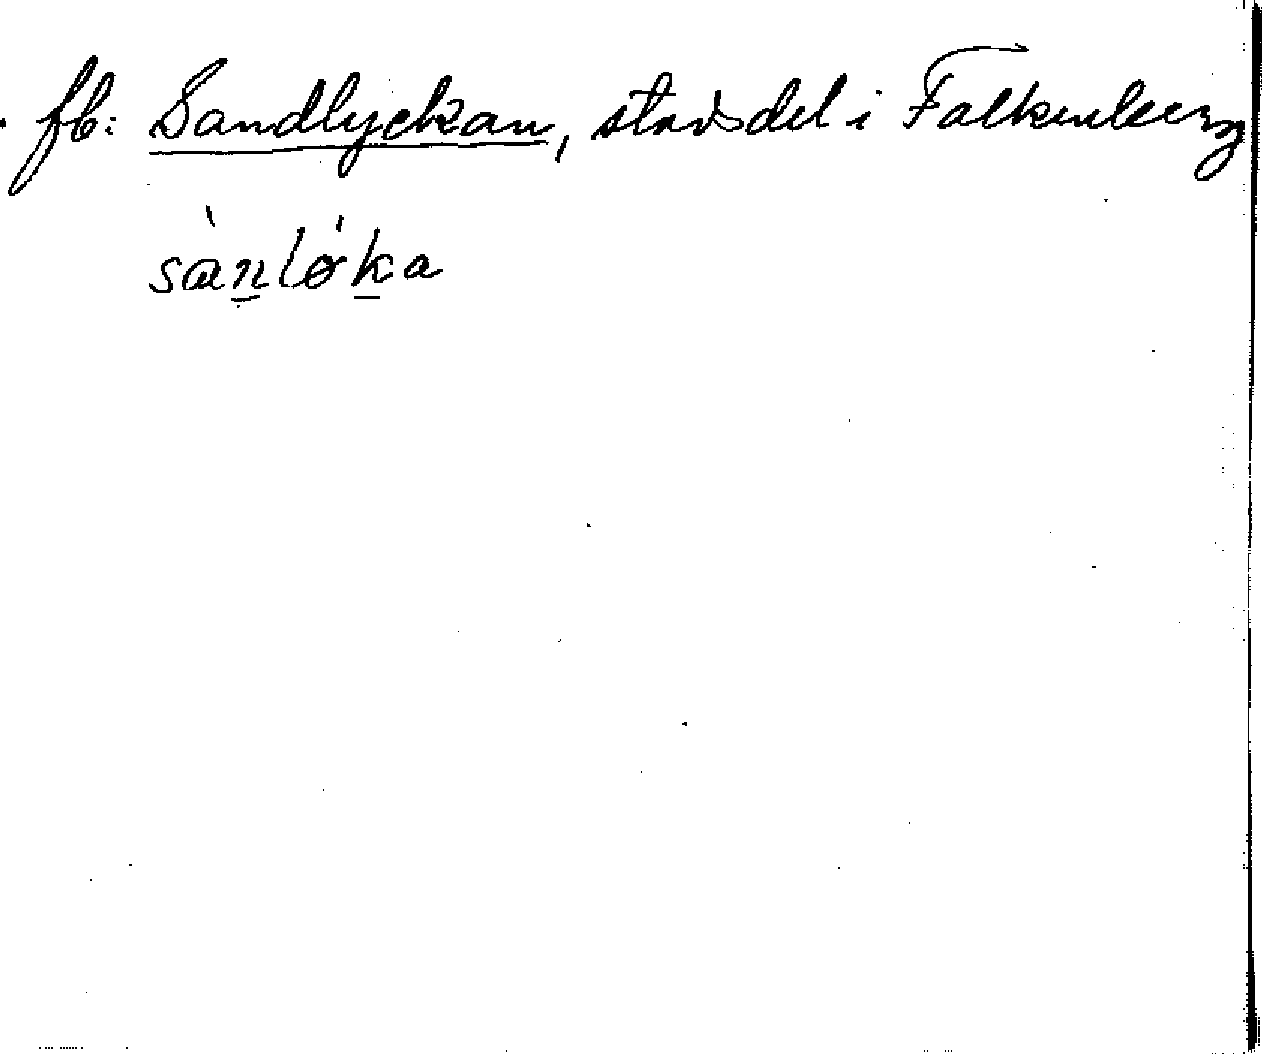 fb: Sandlyckan, stadsdel i Falkenberg
sànløka